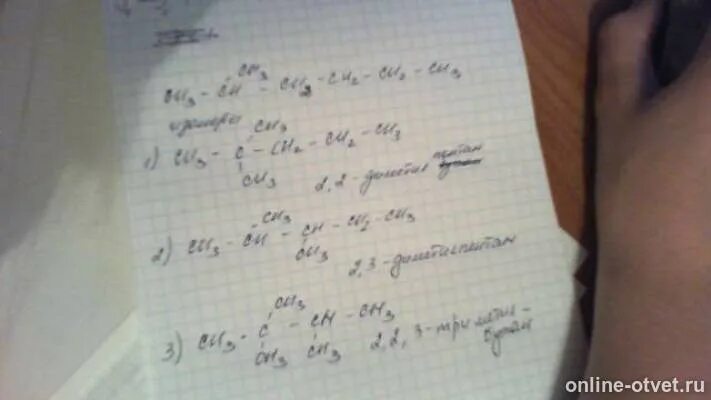 CH3
CH3 - CH - CH2 - CH2 - CH2 - CH3
изомеры
CH3
1) CH3 - C - CH2 - CH2 - CH3
CH3
2,2 - диметил пентан
CH3
2) CH3 - CH - CH - CH2 - CH3
CH3
2,3 - диметилпентан
CH3
3) CH3 - C - CH - CH3
CH3 CH3
2,2,3 - три метил-
бутан
online-otvet.ru